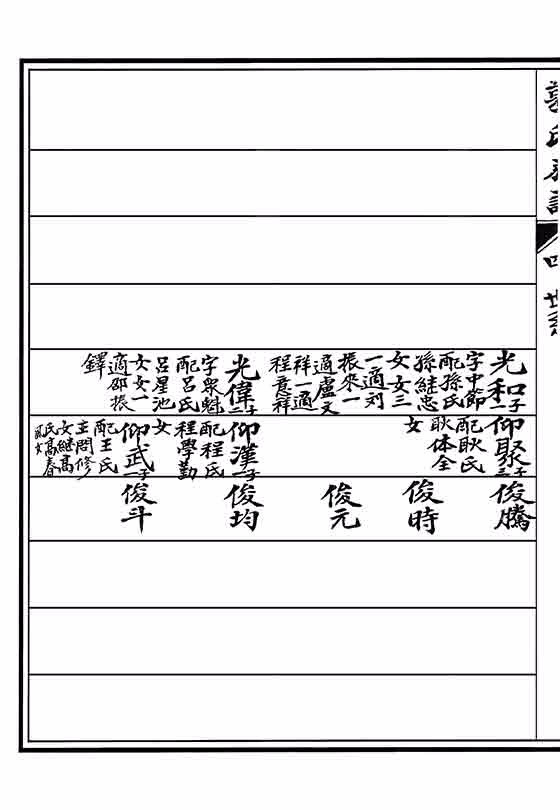 光和一子
字中節
配孫氏
孫継忠
女女三
一適刘
振來一
適盧文
祥一適
程意祥
光偉二子
字眾魁
配呂氏
呂星池
女女一
適邵振
鐸
仰聚三子
配耿氏
耿体全
女
仰漢一子
配程氏
程學勤
女
仰武一子
配王氏
王問修
女継高
氏高春
女
俊騰
俊時
俊元
俊均
俊斗